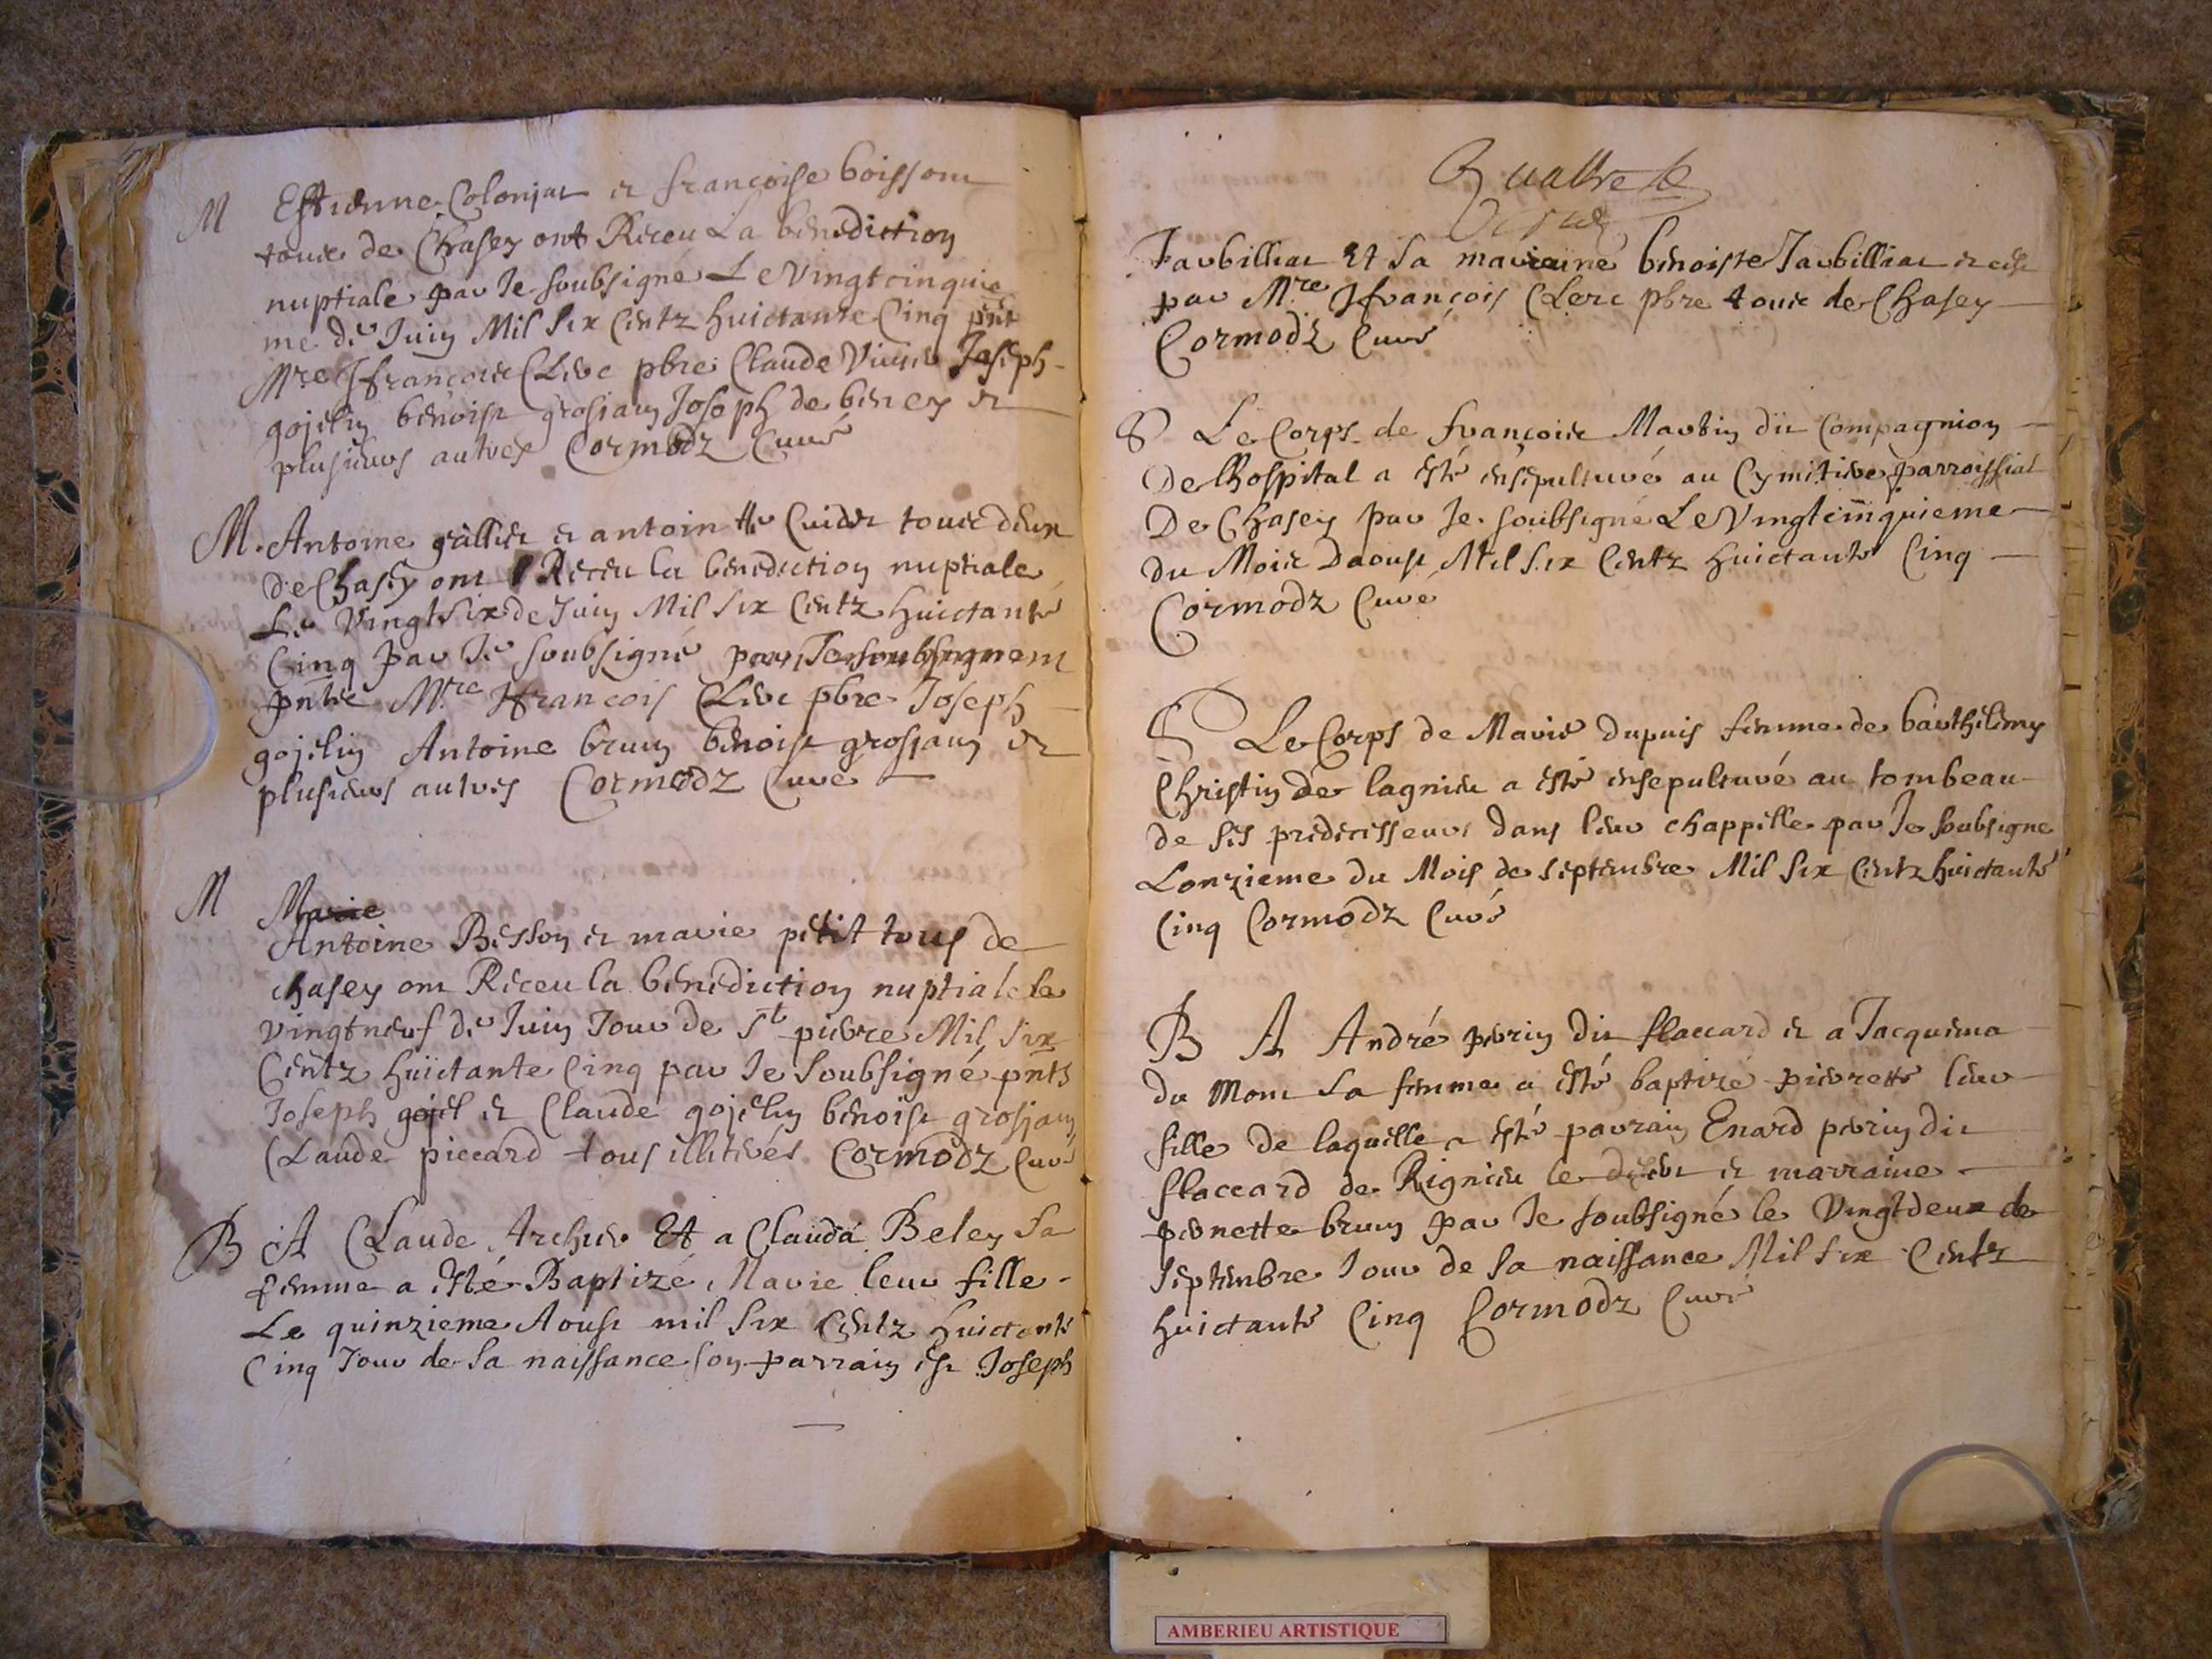 M Estienne Colonjat et françoise boissom
touts de Chasey ont Receu La benediction
nuptiale par Je soubsigné Le Vingtcinquie
me de Juin Mil Six Centz huictante Cinq pnt
Mre ffrançois Clerc pbre Claude Joseph
gojelin benoist grosjean Joseph de beney et
plusieurs autres Cormodz Curé
M. Antoine gallier et antoin tte Cuider touts deux
De Chasey ont Receu la benediction nuptiale
Le Vingtsix de Juin Mil Six Centz huictante
Cinq par Je soubsigné par Je soubsigne en
pnce Mre ffrancois Clerc pbre Joseph
gojelin Antoine brun benoist grosjean et
plusieurs autres Cormodz Curé
M Marie
Antoine Besson et marie petit tous de
chasey ont Receu la benediction nuptiale le
vingtneuf de Juin Jour de St pierre Mil Six
Centz huictante Cinq par Je Soubsigné pnts
Joseph gojel et Claude gojelin benoist grosjean
Claude piccard tous illiterés Cormodz Curé
B A Claude Archer Et a Clauda Beley Sa
femme a esté Baptizé Marie leur fille
Le quinzieme Aoust mil Six Centz huictante
Cinq Jour de Sa naissance son parrain est Joseph
Quattre
Jarbilliat Et Sa maraine benoiste Jarbilliat et ce
par Mre ffrançois Clerc pbre touts de Chasey
Cormodz Curé
S Le Corps de françois Martin dit Compagnion
De lhospital a esté ensepulturé au Cymitiere parroissial
De Chasey par Je soubsigné Le Vingtcinquieme
du Mois Daoust Mil Six Centz huictante Cinq
Cormodz Curé
S Le Corps de Marie dupuis femme de barthelemy
Christin de lagnieu a esté ensepulturé au tombeau
de ses predecesseurs dans leur chappelle par Je Soubsigne
Lonzieme du Mois de septembre Mil Six Centz huictante
Cinq Cormodz Curé
B A André perrin dit flaccard et a Jacquema
du Mont Sa femme a esté baptizé pierrette leur
fille de laquelle a esté parrain Enard perrin dit
flaccard de Rignieu le desert et marraine
pernette brun par Je soubsigné le Vingtdeux de
Septembre Jour de Sa naissance Mil Six Centz
huictante Cinq Cormodz Curé
AMBERIEU ARTISTIQUE